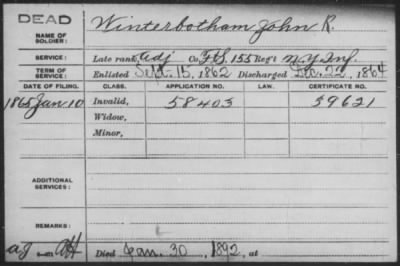 DEAD
NAME OF SOLDIER: Winterbotham John R.
SERVICE: Late rank, Adj Co. F&S, 155 Reg't N.Y. Inf.
TERM OF SERVICE: Enlisted Sept. 15, 1862 Discharged Dec. 22, 1864
DATE OF FILING. CLASS. APPLICATION NO. LAW. CERTIFICATE NO.
1865 Jan 10 Invalid, 58403 59621
Widow,
Minor,
ADDITIONAL SERVICES:
REMARKS:
Died Jan. 30, 1892, at